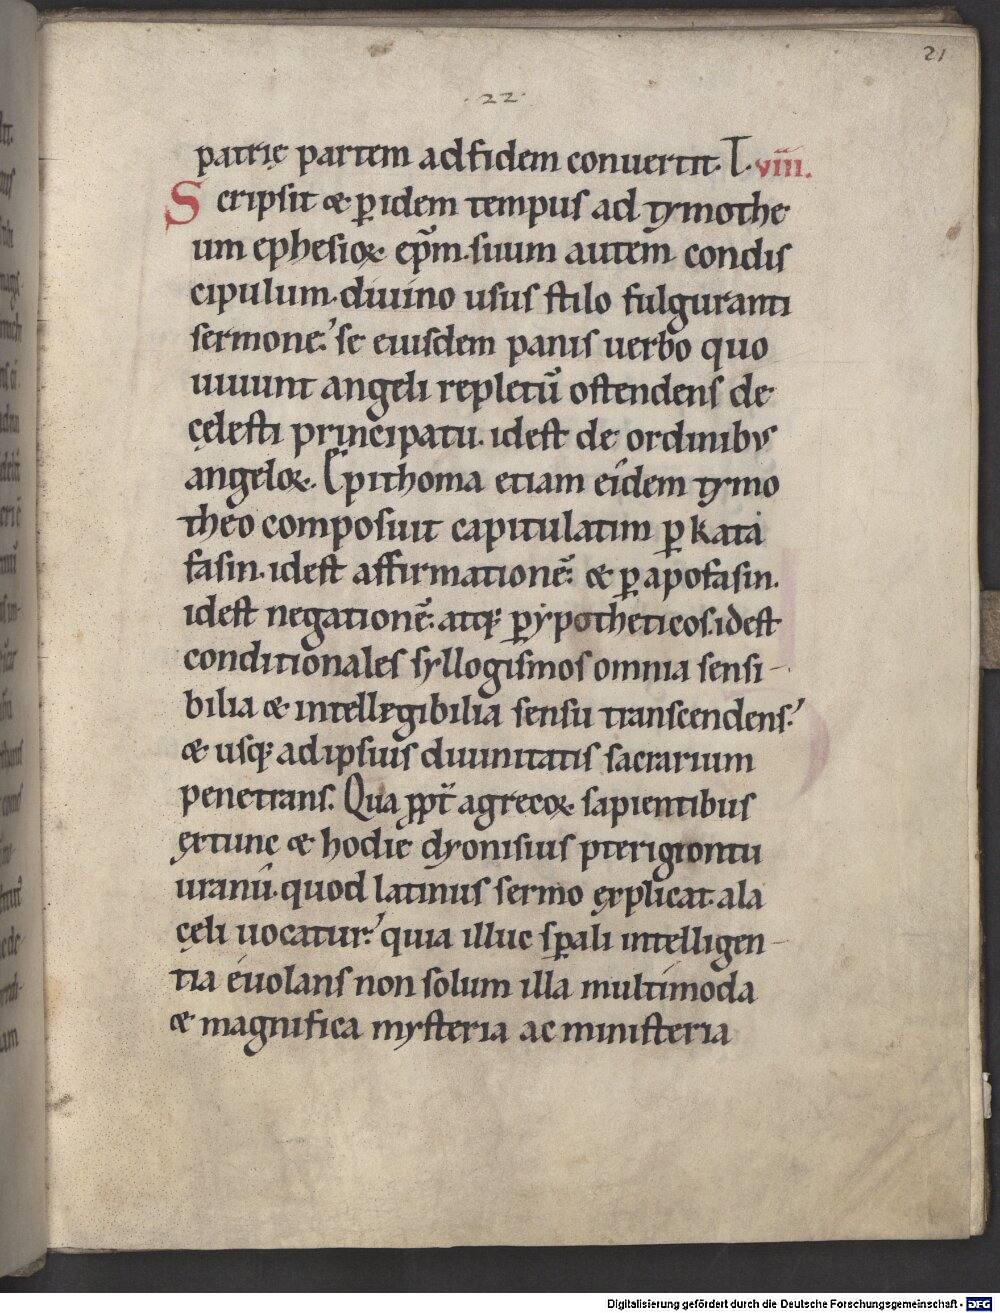 21
·22·
patrię partem ad fidem conuertit. L. viiii.
Scripsit & ꝑ idem tempus ad tymothe
um ephesioꝝ ep̄m. suum autem condis
cipulum. diuino usus stilo fulguranti
sermone. se eiusdem panis uerbo quo
uiuunt angeli repletū ostendens de
cęlesti principatu. idest de ordinibus
angeloꝝ. Epithoma etiam eidem tymo
theo composuit capitulatim ꝑ kata
fasin. idest affirmationē. & ꝑ apofasin.
idest negationē. atq; ꝑ ypotheticos. idest
conditionales syllogismos omnia sensi-
bilia & intellegibilia sensu transcendens.
& usq; ad ipsius diuinitatis sacrarium
penetrans. Qua ꝓpt̄ a grecoꝝ sapientibus
ex tunc & hodie dyonisius pterigiontu
uranu. quod latinus sermo explicat. ala
cęli uocatur. quia illuc sp̄ali intelligen-
tia euolans non solum illa multimoda
& magnifica mysteria ac ministeria
Digitalisierung gefördert durch die Deutsche Forschungsgemeinschaft - DFG